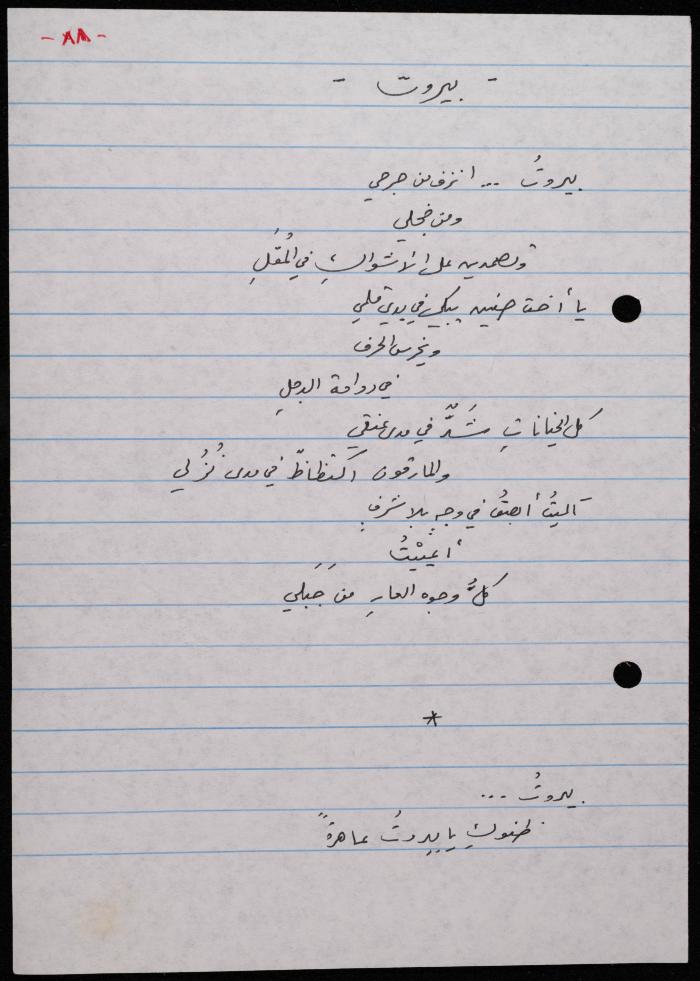 - ٨٨ -
- بيروت -
بيروتُ ... انزف من جرحي
ومن خجلي
وتصمدين على الأشواكِ في المُقَلِ
يا أخت حنين يبكي في يدي قلمي
ويخرس الحرف
في دوامة الدجلِ
كل الخياناتِ شَدٌّ في مدى عنقي
والمارقون اكتظاظٌ في مدى نُزُلي
آليتُ أبصقُ في وجهٍ بلا شرفٍ
كلَّ وجوه العارِ من جَبَلي
*
بيروتُ ...
ظنوكِ يا بيروتُ عاهرةً